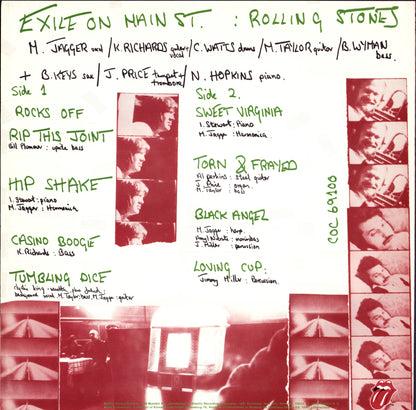 EXILE ON MAIN ST. : ROLLING STONES
M. JAGGER vocal / K. RICHARDS guitar & vocal / C. WATTS drums / M. TAYLOR guitar / B. WYMAN bass.
+ B. KEYS sax / J. PRICE trumpet & trombone / N. HOPKINS piano.
Side 1
ROCKS OFF
RIP THIS JOINT
Bill Plummer : upright bass
HIP SHAKE
I. Stewart : piano
M. Jagger : Harmonica
CASINO BOOGIE
K. Richards : Bass
TUMBLING DICE
M. Taylor : bass, M. Jagger : guitar
Side 2.
SWEET VIRGINIA
I. Stewart : Piano
M. Jagger : Harmonica
TORN & FRAYED
Al perkins : Steel guitar
J. Price : organ
M. Taylor : bass
BLACK ANGEL
M. Jagger : harp.
marimbas
J. Miller : percussion
LOVING CUP :
Jimmy Miller : Percussion
COC 69100